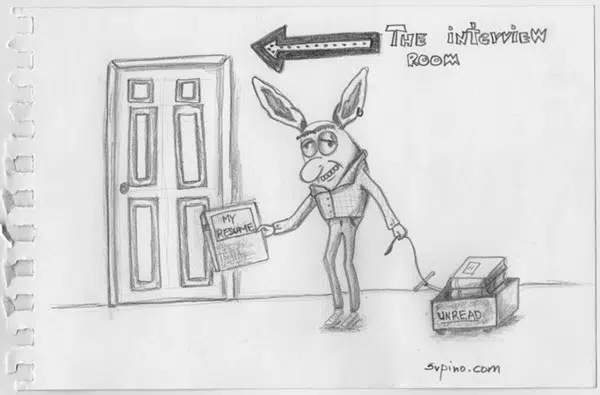 THE intERVIEW
ROOM
MY
RESUME
UNREAD
svpino.com